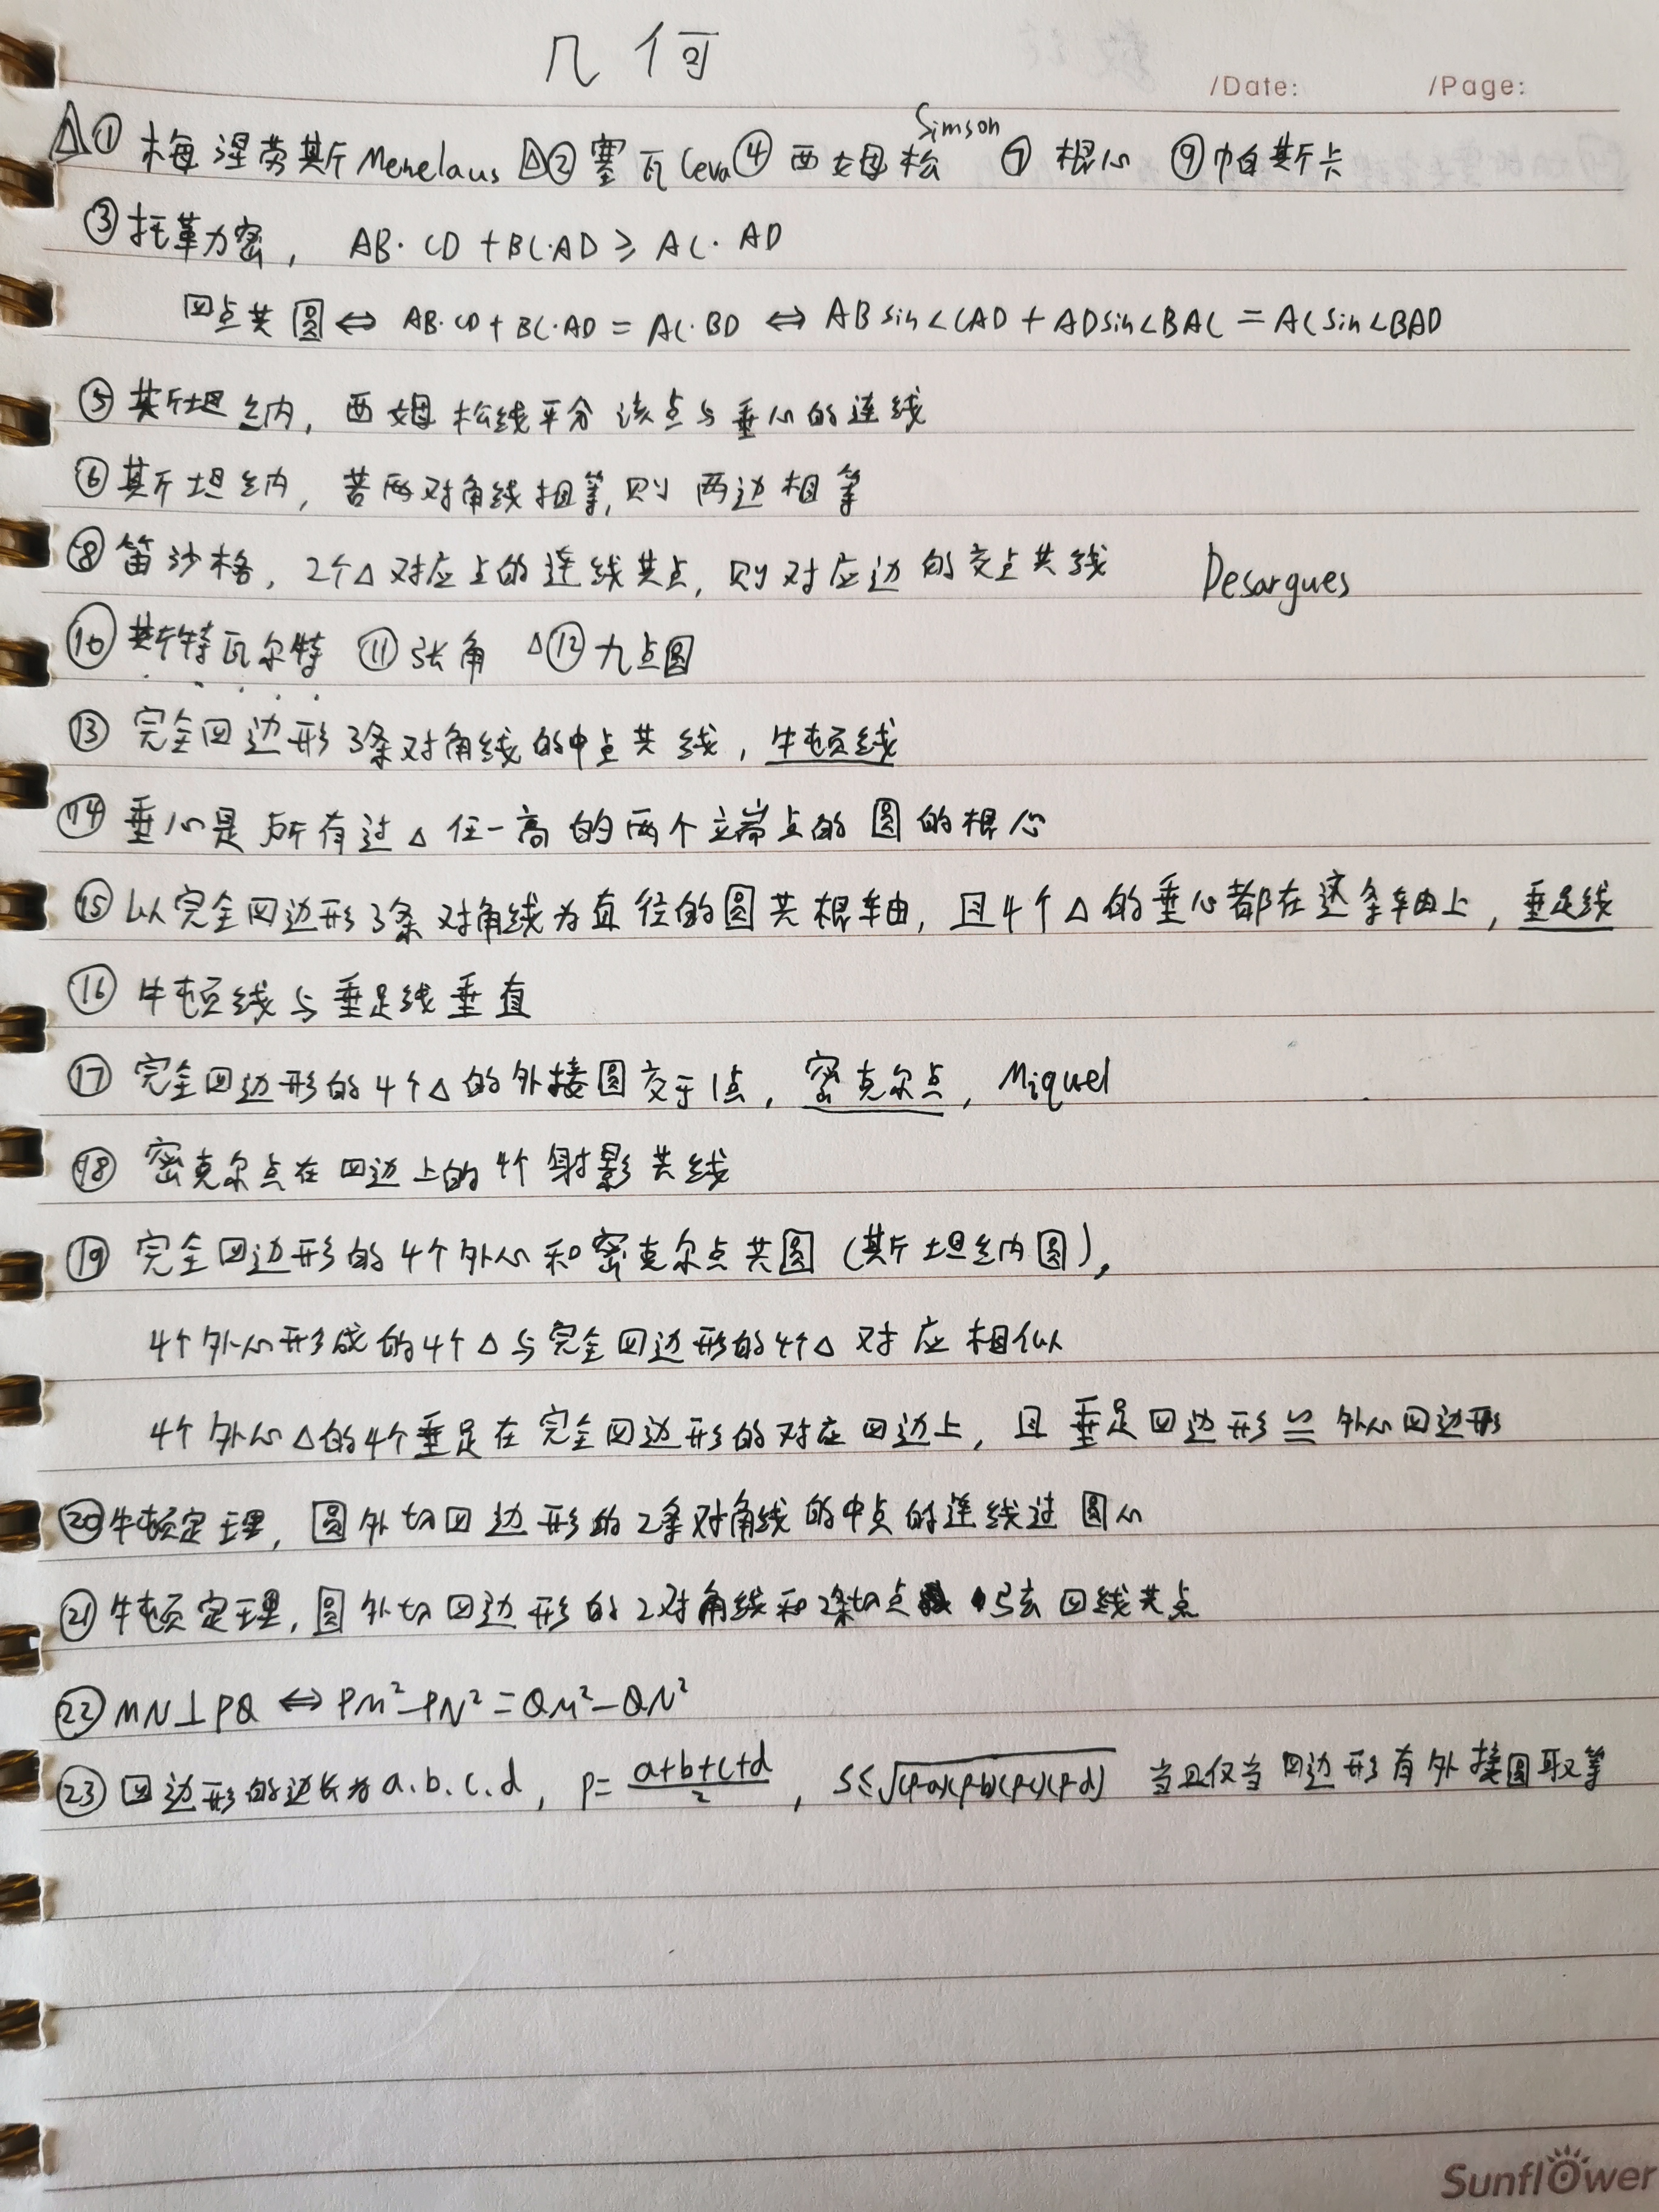 几何
/Date: /Page:
△① 梅涅劳斯 Menelaus △② 塞瓦 Ceva ④ 西姆松 Simson ⑦ 根心 ⑨ 帕斯卡
③ 托勒密, AB·CD+BC·AD≥AC·AD
四点共圆⇔AB·CD+BC·AD=AC·BD⇔ABsin∠CAD+ADsin∠BAC=ACsin∠BAD
⑤ 斯坦纳, 西姆松线平分该点与垂心的连线
⑥ 斯坦纳, 若两对角线相等,则两边相等
⑧ 笛沙格, 2个△对应点的连线共点, 则对应边的交点共线 Desargues
⑩ 斯特瓦尔特 ⑪ 张角 △⑫ 九点圆
⑬ 完全四边形3条对角线的中点共线, 牛顿线
⑭ 垂心是所有过△任一高的两个端点的圆的根心
⑮ 以完全四边形3条对角线为直径的圆共根轴, 且4个△的垂心都在这条轴上, 垂足线
⑯ 牛顿线与垂足线垂直
⑰ 完全四边形的4个△的外接圆交于1点, 密克尔点, Miquel
⑱ 密克尔点在四边上的4个射影共线
⑲ 完全四边形的4个外心和密克尔点共圆(斯坦纳圆),
4个外心形成的4个△与完全四边形的4个△对应相似
4个外心△的4个垂足在完全四边形的对应四边上, 且垂足四边形≌外心四边形
⑳ 牛顿定理, 圆外切四边形的2条对角线的中点的连线过圆心
㉑ 牛顿定理, 圆外切四边形的2对角线和2条切点弦四线共点
㉒ MN⊥PQ⇔PM²-PN²=QM²-QN²
㉓ 四边形的边长为a.b.c.d, p=(a+b+c+d)/2, S≤√(p-a)(p-b)(p-c)(p-d) 当且仅当四边形有外接圆取等
Sunflower